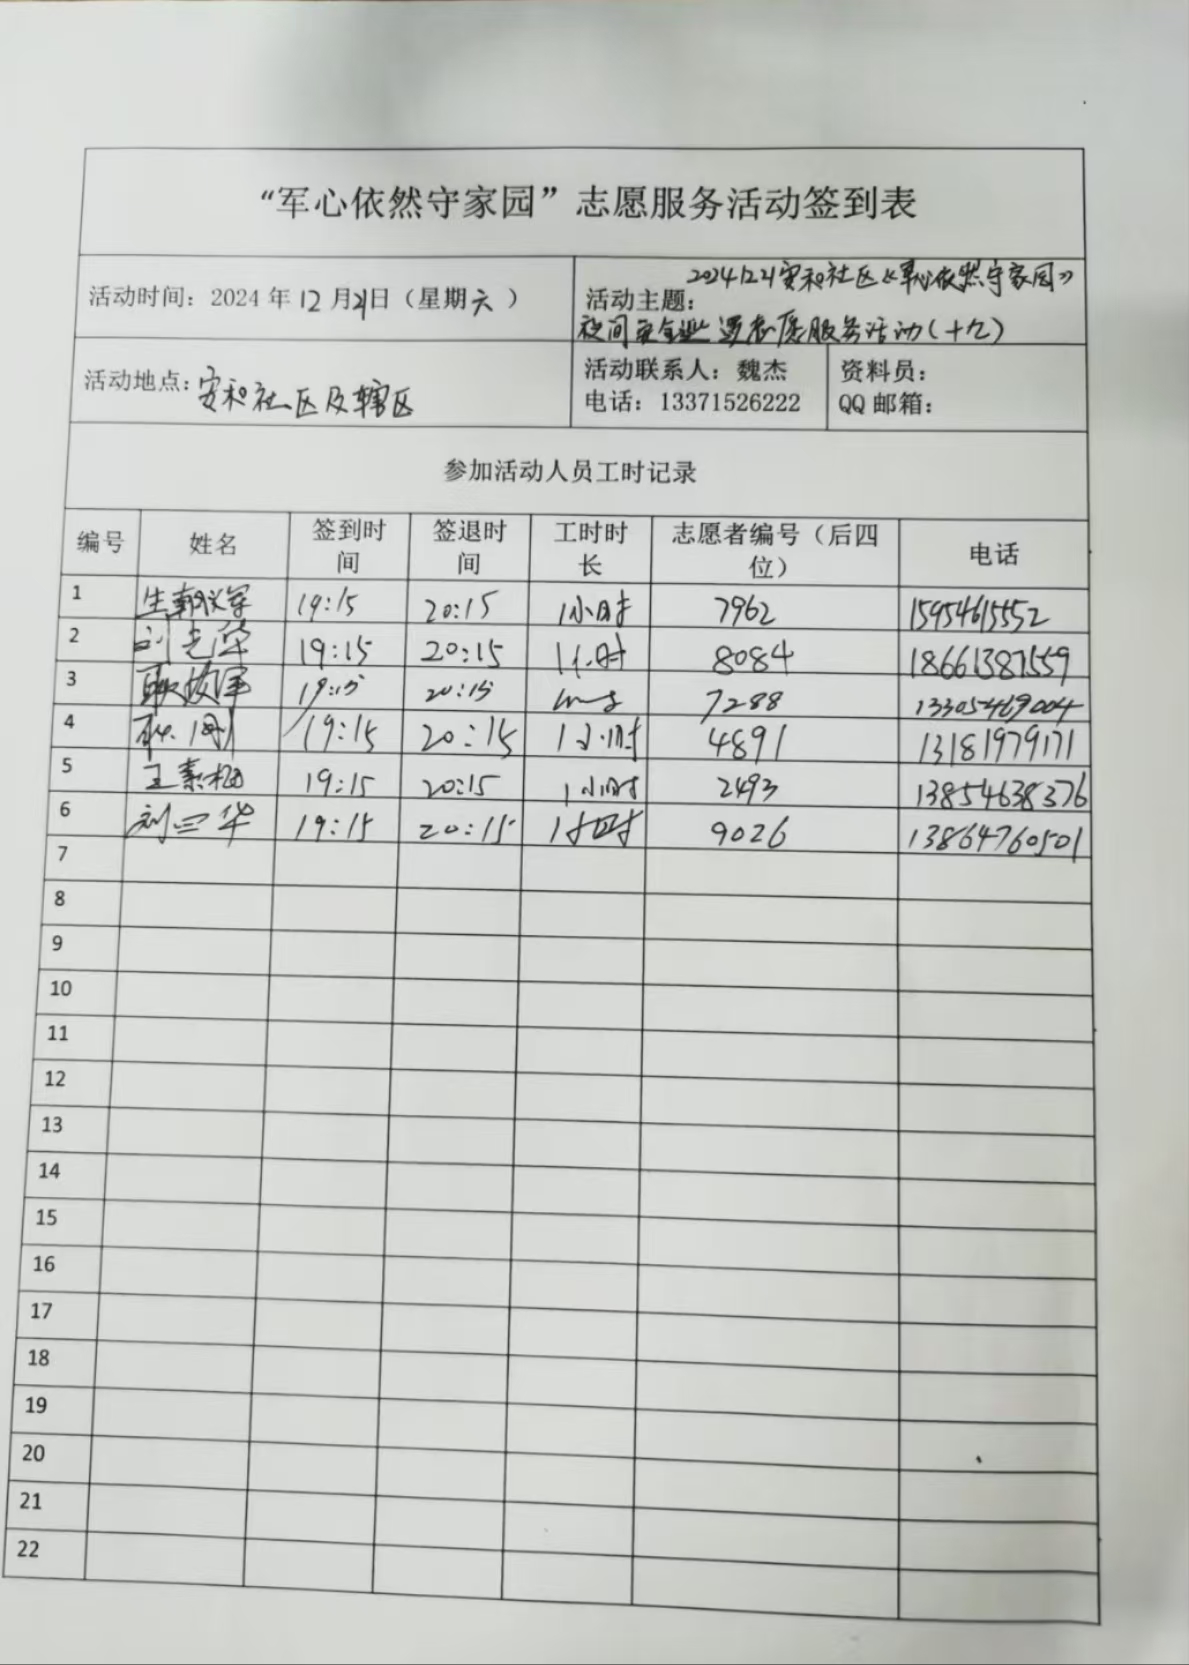 “军心依然守家园”志愿服务活动签到表
活动时间：2024年12月21日（星期六）
活动主题：2024.12.21安和社区《军心依然守家园》
夜间安全巡逻志愿服务活动（十九）
活动地点：安和社区及辖区
活动联系人：魏杰
电话：13371526222
资料员：
QQ邮箱：
参加活动人员工时记录
编号 姓名 签到时间 签退时间 工时时长 志愿者编号（后四位） 电话
1 19:15 20:15 1小时 7962 15954615552
2 刘志华 19:15 20:15 1小时 8084 18661387559
3 19:15 20:15 7288 13305469004
4 19:15 20:15 1小时 4891 13181979171
5 王素梅 19:15 20:15 1小时 2493 13854638376
6 刘三华 19:15 20:15 1小时 9026 13864760501
7
8
9
10
11
12
13
14
15
16
17
18
19
20
21
22